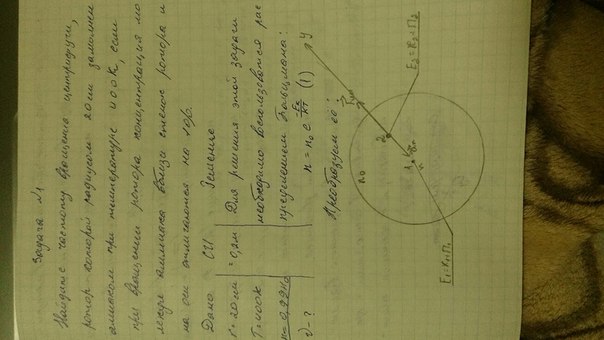 Задача №1
Найдите частоту вращения центрифуги,
ротор которой радиусом 20 см заполнен
аммиаком при температуре 400К, если
при вращении ротора концентрация мо
лекул аммиака вблизи стенок ротора и
на оси отличаются на 1%.
Дано СИ Решение
r = 20 см = 0,2м Для решения этой задачи
T=400К необходимо воспользоваться рас
n = 0,99n₀ пределением Больцмана:
ν - ? n = n₀ e^(-Eк/KT) (1)
Преобразуем её:
y
n₀
2
1
n
E₂ = K₂ + П₂
E₁ = K₁ + П₁